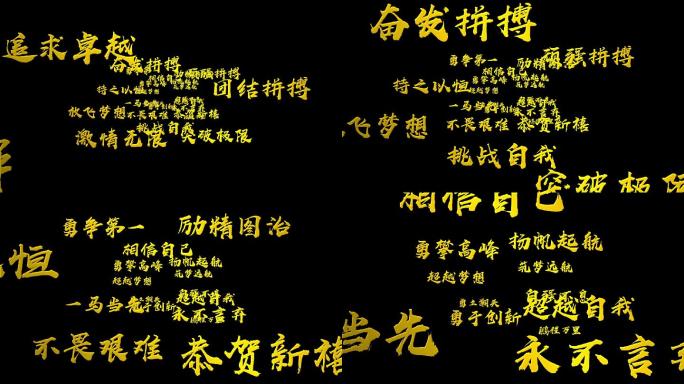 追求卓越
奋发拼搏
持之以恒
团结拼搏
放飞梦想
不畏艰难
挑战自我
激情无限
突破极限
奋发拼搏
勇争第一
顽强拼搏
相信自己
持之以恒
一马当先
飞梦想
不畏艰难
恭贺新禧
挑战自我
突破极限
勇争第一
励精图治
相信自己
恒
勇攀高峰
扬帆起航
超越梦想
筑梦远航
一马当先
勇于创新
超越自我
永不言弃
不畏艰难
恭贺新禧
相信自己
勇攀高峰
扬帆起航
超越梦想
筑梦远航
当先
勇于创新
超越自我
鹏程万里
永不言弃